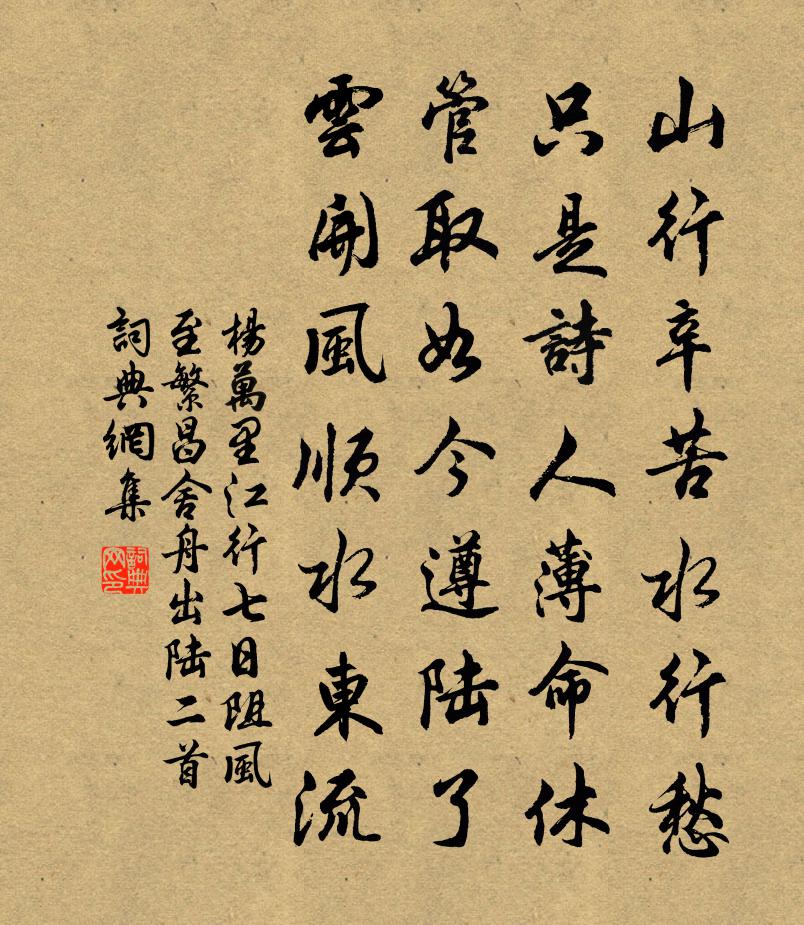 山行辛苦水行愁
只是詩人薄命休
管取如今遵陸了
雲開風順水東流
楊萬里江行七日阻風
至繁昌舍舟出陸二首
詞典網集
詞典
网印